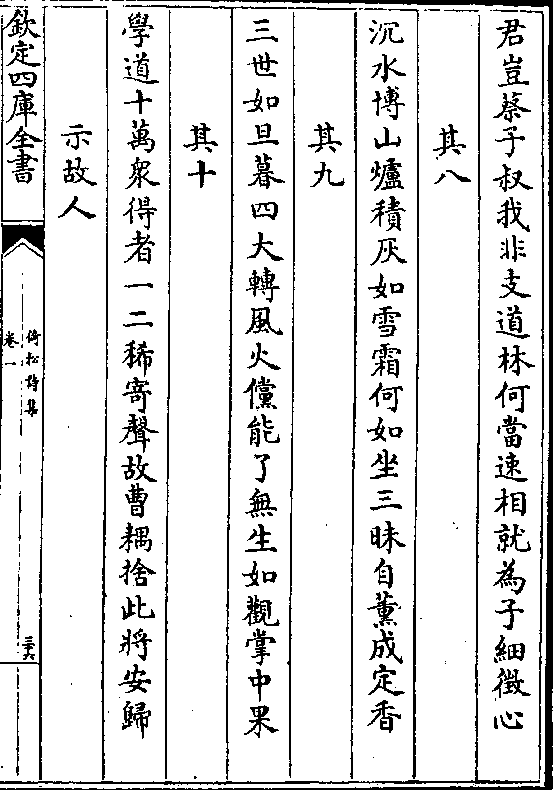 君豈蔡子叔我非支道林何當速相就為子細徴心
其八
沉水博山爐積灰如雪霜何如坐三昧自薰成定香
其九
三世如旦暮四大轉風火儻能了無生如觀掌中果
其十
學道十萬衆得者一二稀寄聲故曹耦捨此將安歸
示故人
欽定四庫全書
倚松詩集
卷一
三十六